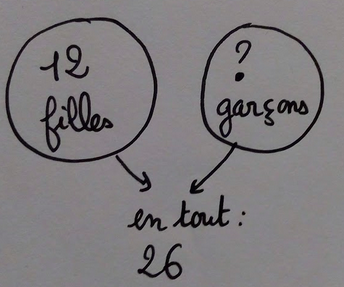 12
filles
?
garçons
en tout :
26